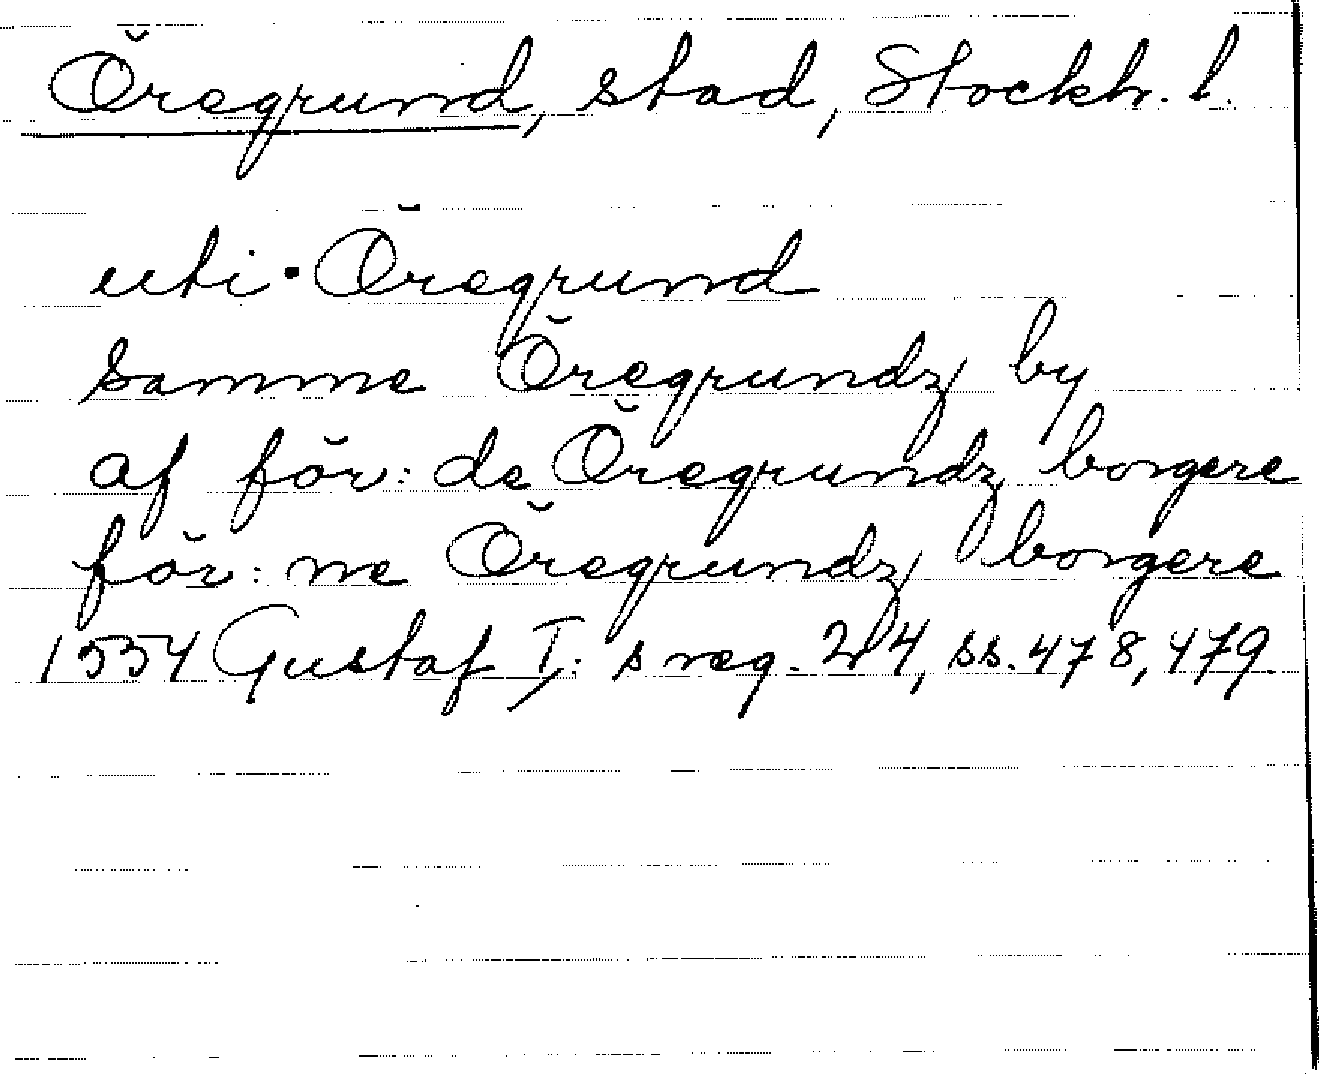 Öregrund, stad, Stockh. l.
uti Öregrund
samme Öregrundz by
af för: de Öregrundz borgere
för: ne Öregrundz borgere
1554 Gustaf I: s reg. 24, ss. 478, 479